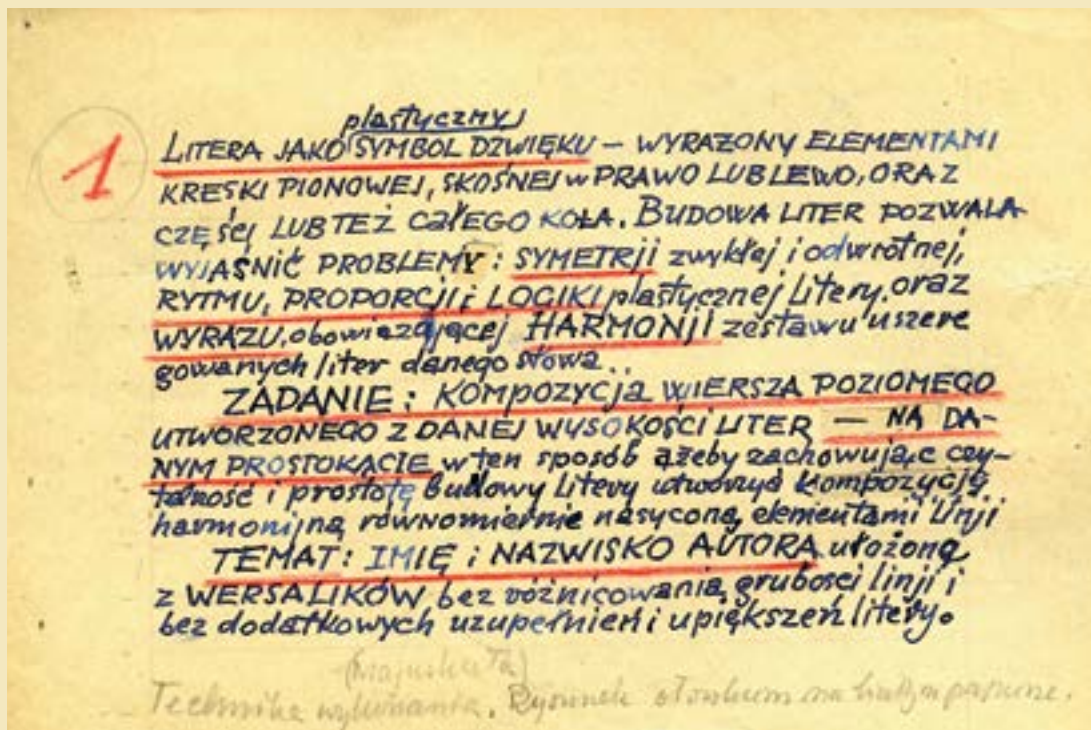 1
plastyczny
LITERA JAKO SYMBOL DZWIĘKU – WYRAŻONY ELEMENTAMI
KRESKI PIONOWEJ, SKOŚNEJ w PRAWO LUB LEWO, ORAZ
CZĘŚCI LUB TEŻ CAŁEGO KOŁA. BUDOWA LITER POZWALA
WYJAŚNIĆ PROBLEMY : SYMETRJI zwykłej i odwrotnej,
RYTMU, PROPORCJI i LOGIKI plastycznej litery, oraz
WYRAZU, obowiązującej HARMONJI zestawu uszere
gowanych liter danego słowa..
ZADANIE : KOMPOZYCJA WIERSZA POZIOMEGO
UTWORZONEGO Z DANEJ WYSOKOŚCI LITER — NA DA-
NYM PROSTOKĄCIE w ten sposób ażeby zachowując czy-
telność i prostotę budowy litery utworzyć kompozycję
harmonijną równomiernie nasyconą elementami linji
TEMAT: IMIĘ i NAZWISKO AUTORA ułożoną
z WERSALIKÓW bez różnicowania grubości linji i
bez dodatkowych uzupełnień i upiększeń litery.
(majuskuła)
Technika wykonania. Rysunek ołówkiem na białym papierze.